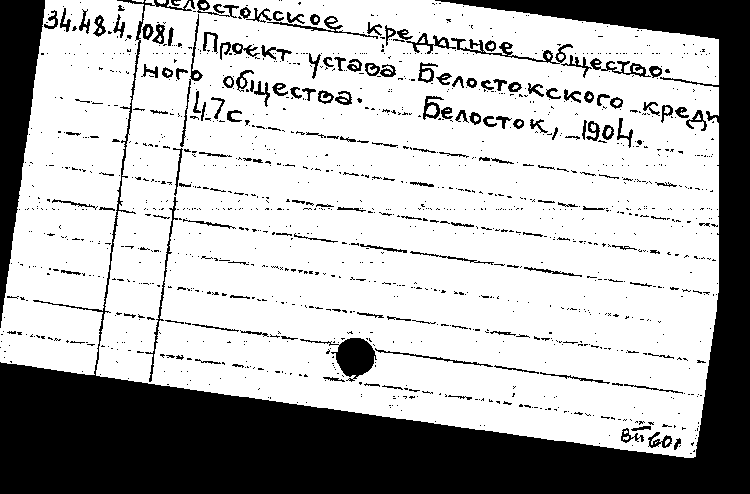 Белостокское кредитное общество.
34.48.4.1081. Проект устава Белостокского кредит
ного общества. Белосток, 1904.
47с.